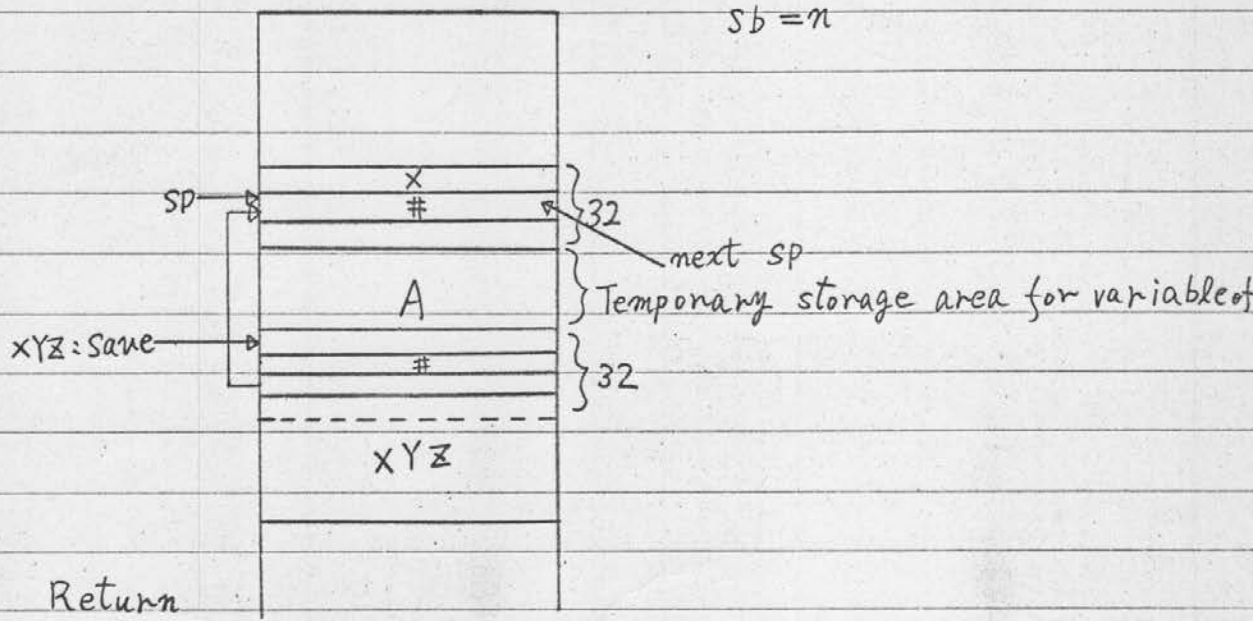 sb = n
x
sp
#
32
next sp
A
Temporary storage area for variable of
XYZ: Save
#
32
XYZ
Return